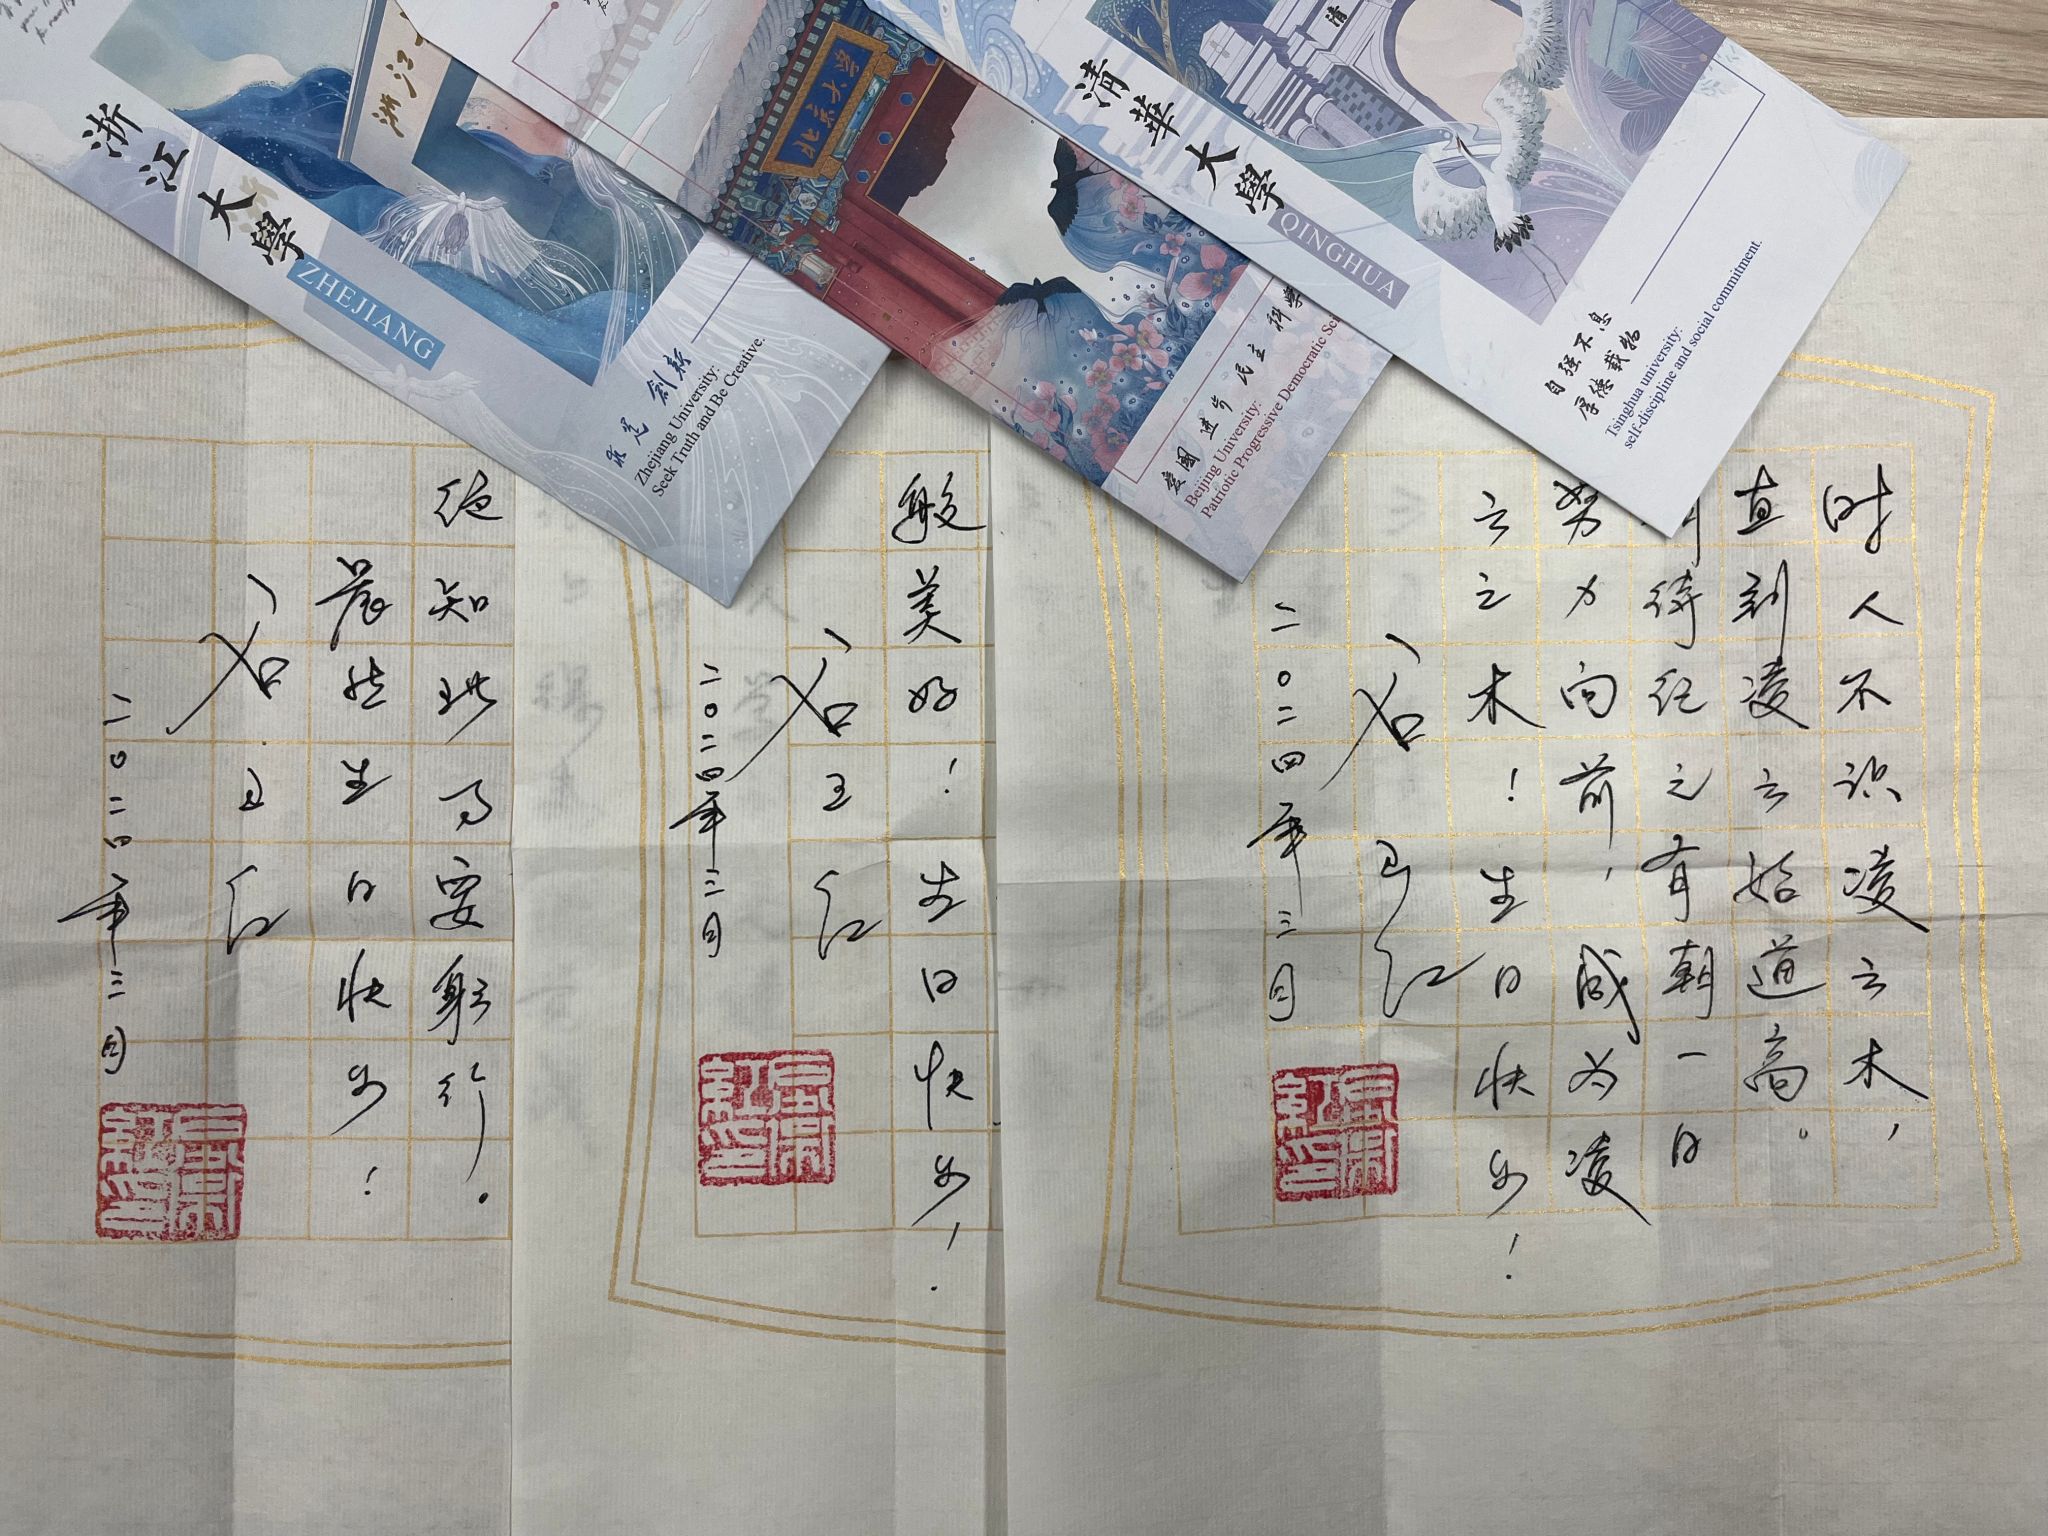 浙江大學
ZHEJIANG
求是 創新
Zhejiang University:
Seek Truth and Be Creative.
北京大学
愛國 進步 民主 科學
Beijing University:
Patriotic Progressive Democratic Sci
清華大學
QINGHUA
自强不息
厚德载物
Tsinghua university:
self-discipline and social commitment.
时人不识凌云木，
直到凌云始道高。
待红之有朝一日
努力向前，成为凌
云之木！生日快乐！
二〇二四年三月
般美好！生日快乐！
二〇二四年三月
绝知此事要躬行.
晨然生日快乐！
二〇二四年三月